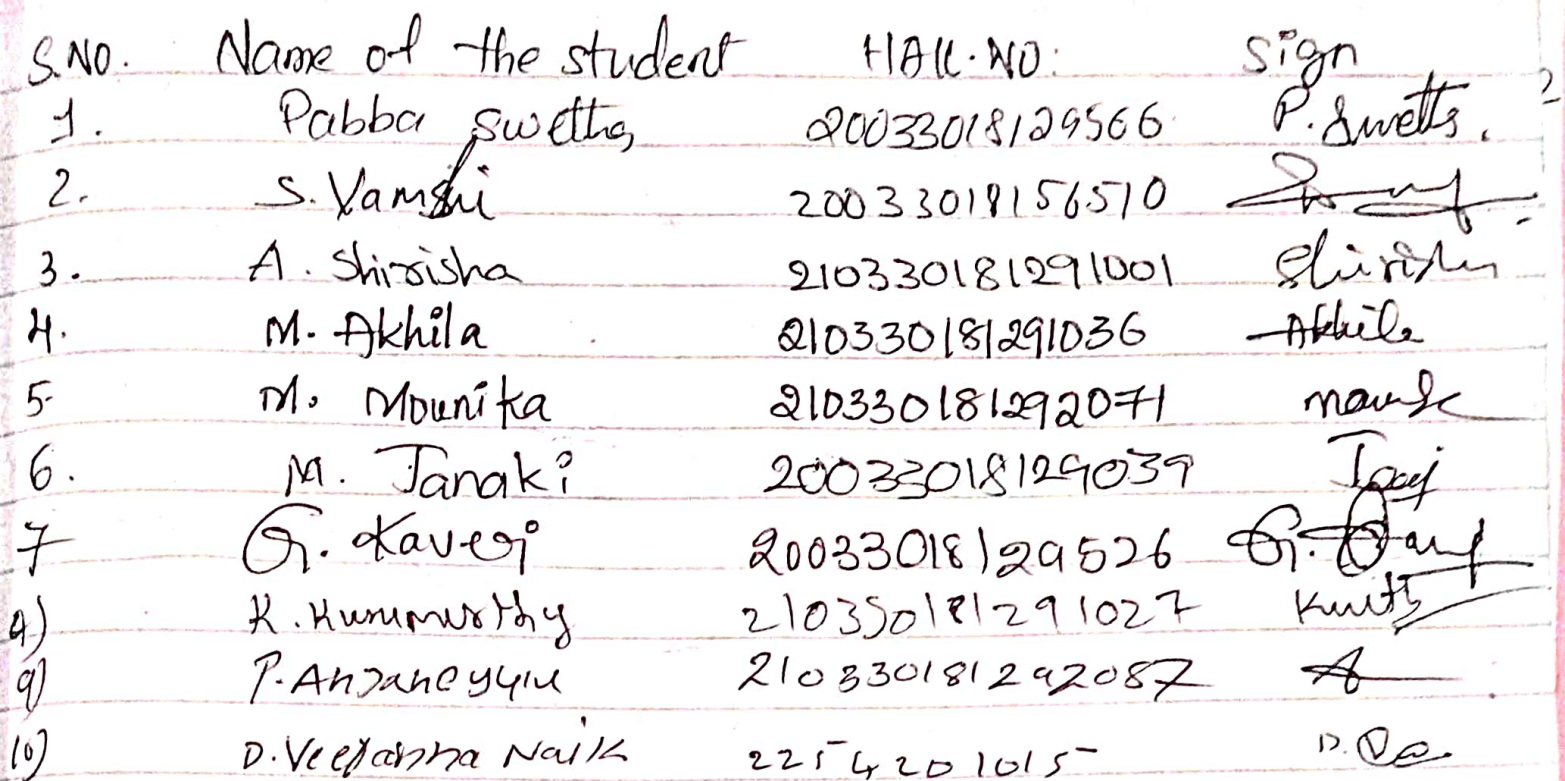 S.NO. Name of the student HALL.NO: Sign
1. Pabba swetha 20033018129566 P. Swetha.
2. S. Vamshi 20033018156510
3. A. Shirisha 210330181291001 Shirisha
4. M. Akhila 210330181291036 Akhila
5. M. Mounika 210330181292071
6. M. Janaki 20033018129039
7 G. Kaveri 20033018129526
K. Kurumurthy 210330181291027
9) P. Anjaneyulu 210330181292087 A
10) D. Veeranna Naik 2254201015